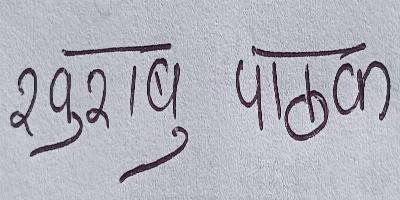 खुशबु पाठक